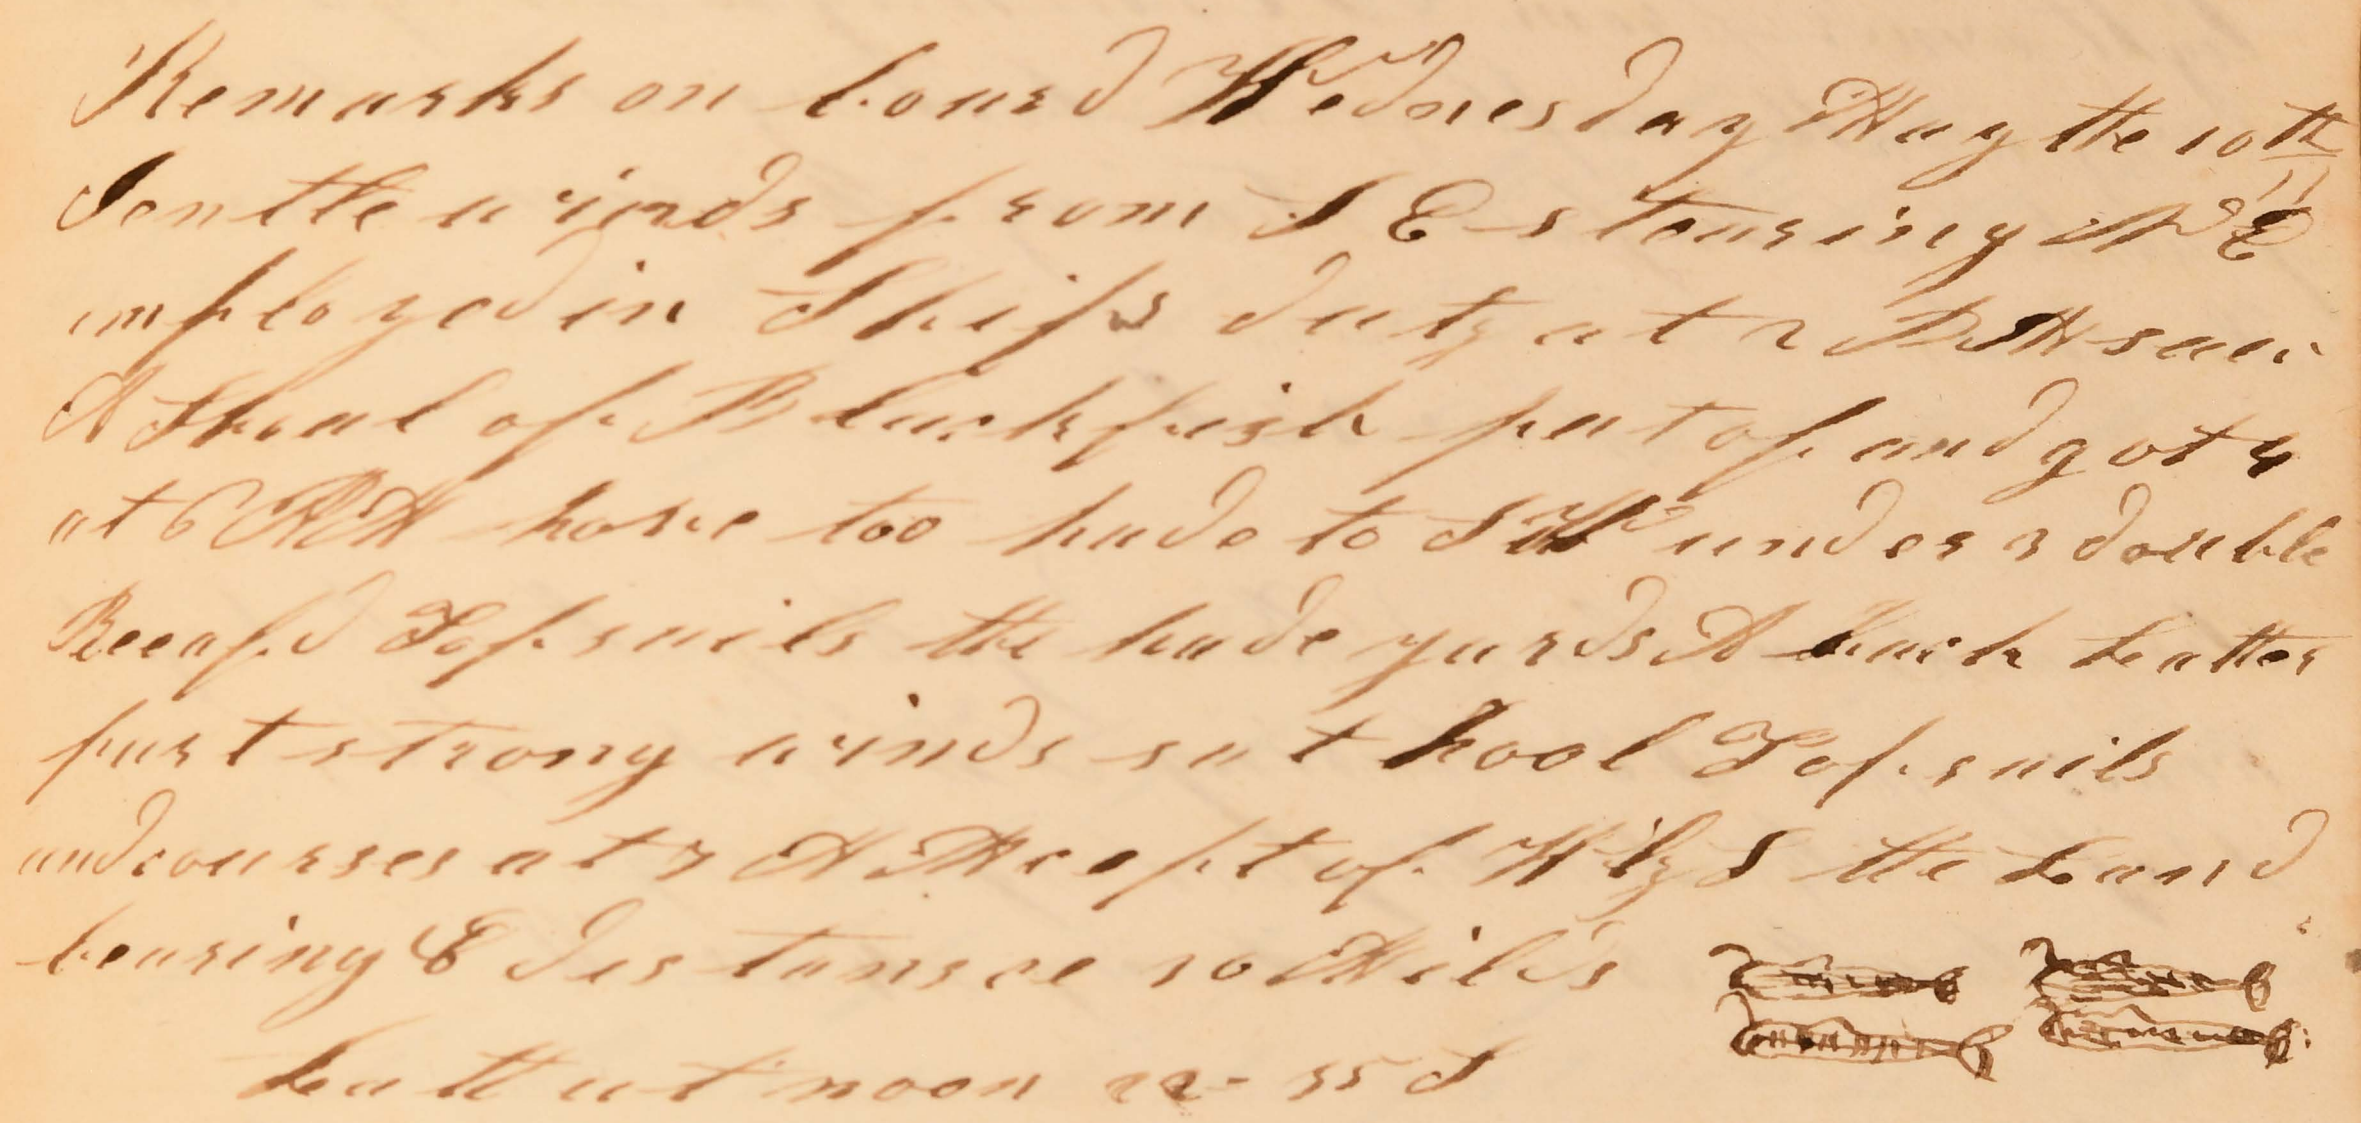 Remarks on board Wednesday May the 10th
Gentle winds from S E stearing N E
imployed in Ships duty at 2 PM saw
A Shoal of Blackfish put of and got 4
at 6 PM hove too hade to SW under 3 double
Reeafd Topsails the hade yards A back Latter
part strong winds sat hool Topsails
and courses at 3 AM cept of W by S the Land
bearing E Distansce 10 Mild's
Latt at noon 22-55 S